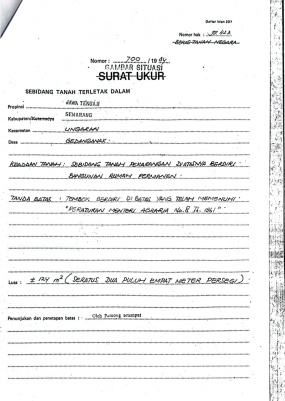 Daftar Isian 207
Nomor hak :
BEKAS TANAH NEGARA
Nomor : 700 / 19 84
GAMBAR SITUASI
SURAT UKUR
SEBIDANG TANAH TERLETAK DALAM
Propinsi JAWA TENGAH
Kabupaten/Kotamadya SEMARANG
Kecamatan UNGARAN
Desa GEDANGANAK
KEADAAN TANAH : SEBIDANG TANAH PEKARANGAN DIATASNYA BERDIRI
BANGUNAN RUMAH PERMANEN.
TANDA BATAS : TEMBOK BERDIRI DI BATAS YANG TELAH MEMENUHI
"PERATURAN MENTERI AGRARIA No. 8 Th. 1961"
Luas : ± 124 m² ( SERATUS DUA PULUH EMPAT METER PERSEGI )
Penunjukan dan penetapan batas : Oleh Pamong setempat